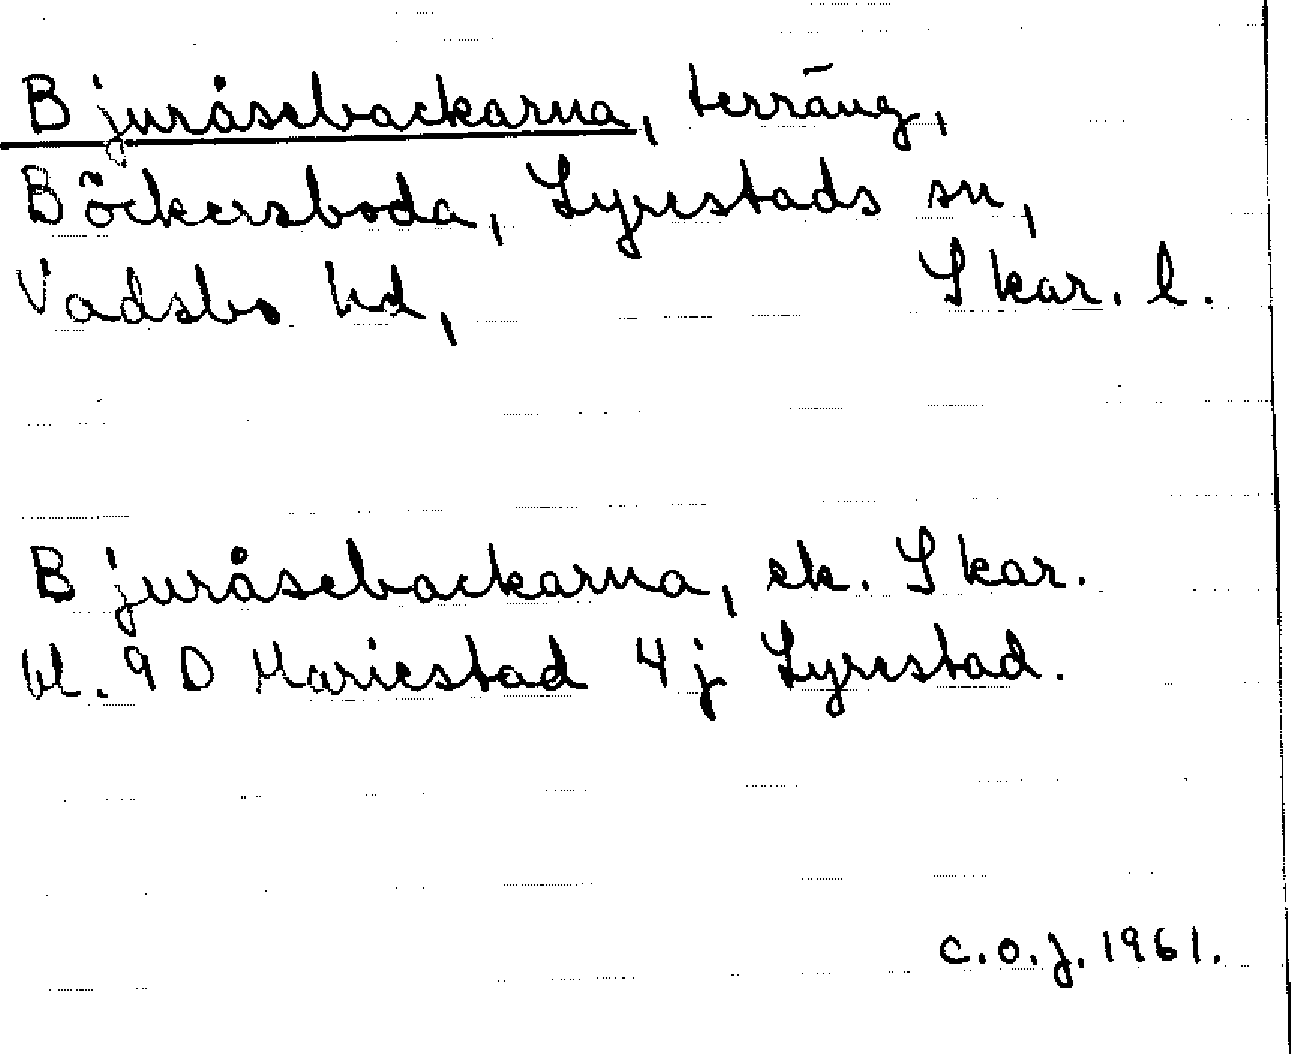 Bjuråsebackarna, terräng,
Böckersboda, Lyrestads sn,
Vadsbo hd, Skar. l.
Bjuråsebackarna, ek. Skar.
bl. 9 D Mariestad 4 j Lyrestad.
C.O.J. 1961.